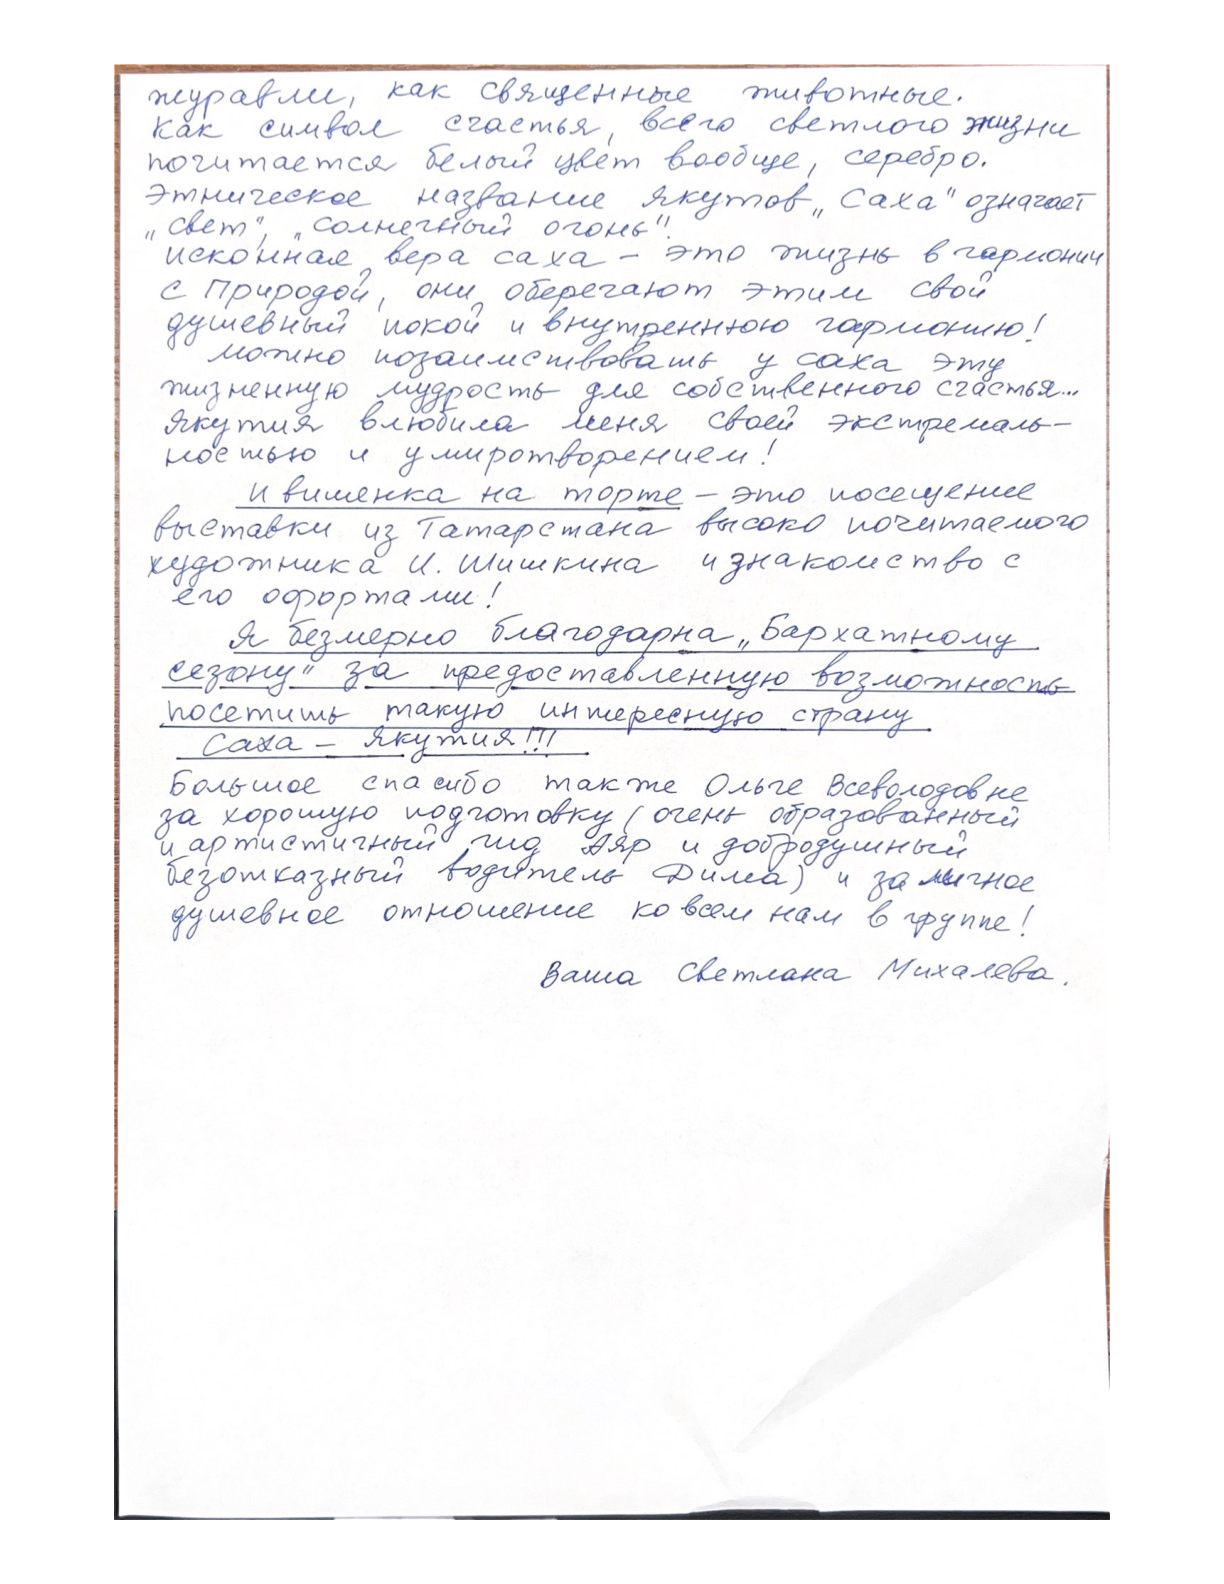 журавли, как священные животные.
Как символ счастья, всего светлого жизни
почитается белый цвет вообще, серебро.
Этническое название якутов „Саха" означает
„свет", „солнечный огонь".
Исконная вера саха – это жизнь в гармонии
с Природой, они оберегают этим свой
душевный покой и внутреннюю гармонию!
Можно позаимствовать у саха эту
жизненную мудрость для собственного счастья...
Якутия влюбила меня своей экстремаль-
ностью и умиротворением!
И вишенка на торте – это посещение
выставки из Татарстана высоко почитаемого
художника И. Шишкина и знакомство с
его офортами!
Я безмерно благодарна „Бархатному
сезону" за предоставленную возможность
посетить такую интересную страну
Саха – Якутия!!!
Большое спасибо также Ольге Всеволодовне
за хорошую подготовку (очень образованный
и артистичный гид Аяр и добродушный
безотказный водитель Дима) и за личное
душевное отношение ко всем нам в группе!
Ваша Светлана Михалева.